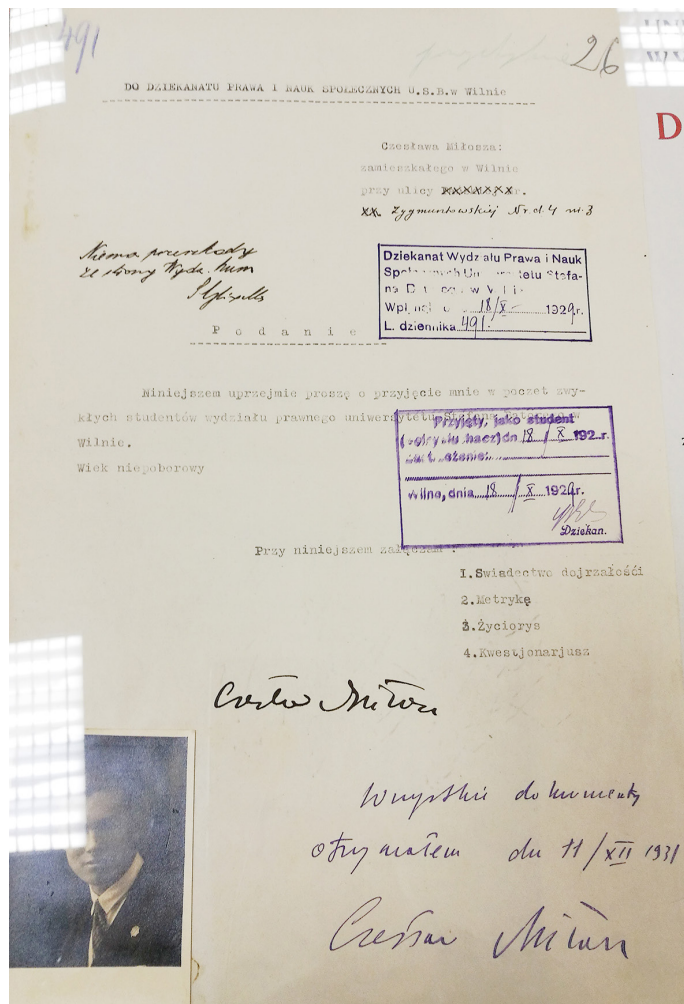 491
26
DO DZIEKANATU PRAWA I NAUK SPOŁECZNYCH U.S.B.w Wilnie
Czesława Miłosza:
zamieszkałego w Wilnie
przy ulicy xxxxxxx r.
xx. Zygmuntowskiej Nr. d. 4 m. 3
Niema przeszkody
ze strony Wydz. hum
Dziekanat Wydz ału Prawa i Nauk
Społ ych Un tetu Stefa-
na w
Wpł 18/X 1929r.
L. dziennika 491.
P o d a n i e
Niniejszem uprzejmie proszę o przyjęcie mnie w poczet zwy-
kłych studentów wydziału prawnego uniwersytetu Stefana Batorego w
Wilnie.
Wiek niepoborowy
Przyjęty, jako student
dn 18/X 192 r.
Wilno, dnia 18/X 1929r.
Dziekan.
Przy niniejszem załączam :
1.Swiadectwo dojrzałośći
2.Metrykę
3.Życiorys
4.Kwestjonarjusz
Czesław Miłosz
Wszystkie dokumenty
otrzymałem dn 11/XII 1931
Czesław Miłosz
D